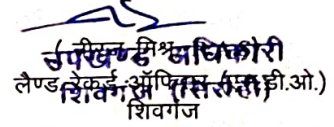 उपखण्ड अधिकारी
लैण्ड रेकर्ड ऑफिसर (एस.डी.ओ.)
शिवगंज (सिरोही)
शिवगंज